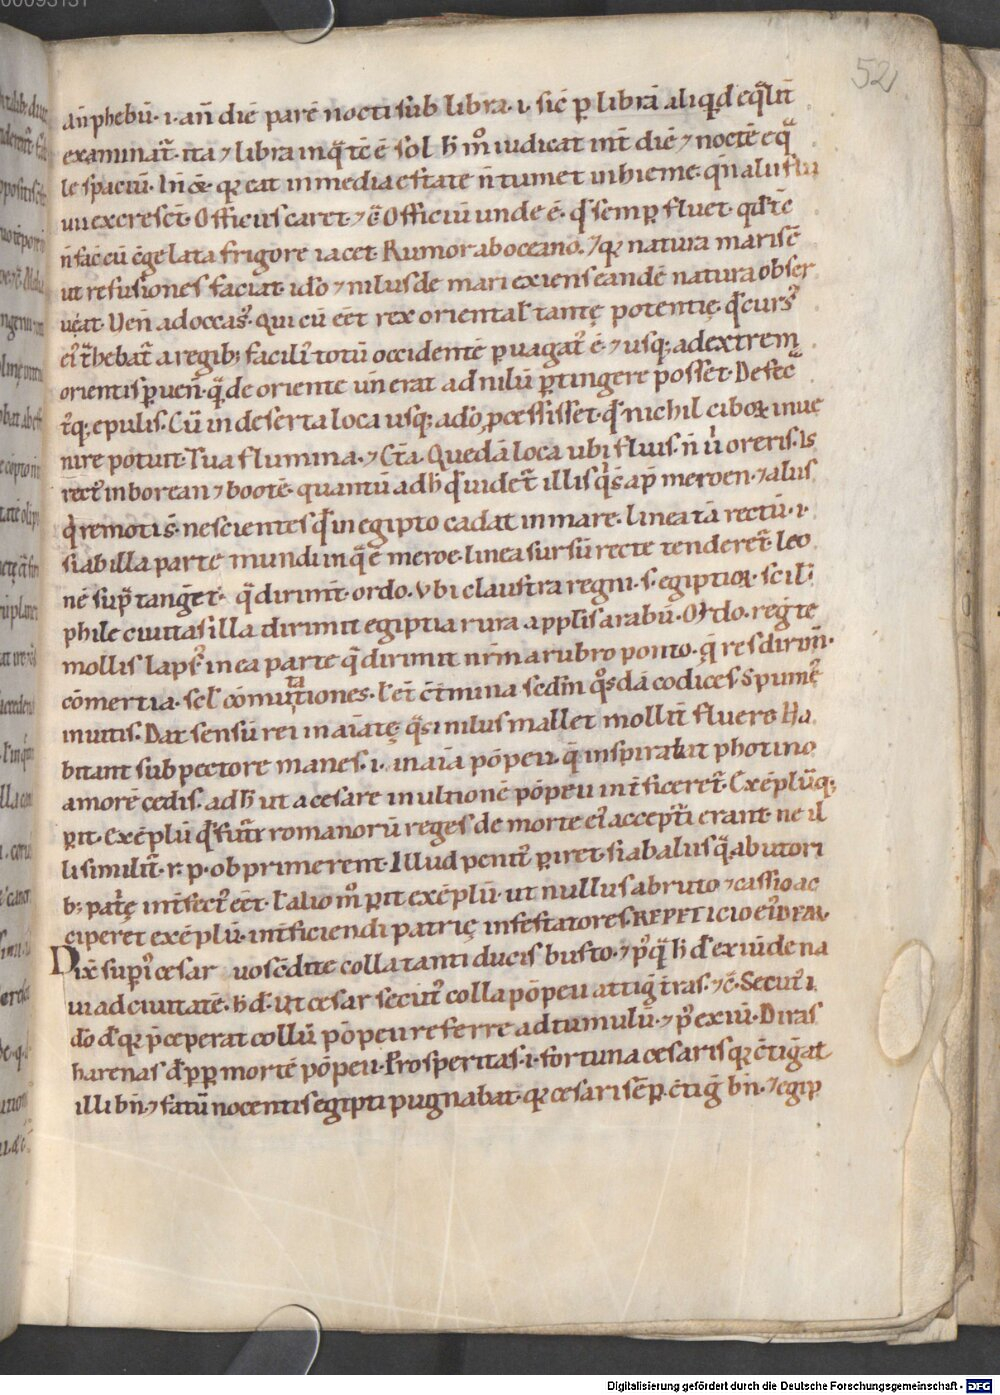 52
an̄ phebū · i · an̄ diē parē nocti sub libra · i · sic̄ ꝑ librā aliqͥd eq̄lit̄
examinat̄ · ita ⁊ libra inq̄ tc̄ ē sol h̄ mͦ iudicat int̄ diē ⁊ noctē eq̄
le spaciū · Inc̄r · qr eat in media estate n̄ tumet in hieme · qn̄ alii flu
uii excresct̄ · Officiis caret · ⁊ ē Officiū unde ē · qd̄ semꝑ fluet · qd̄ tc̄
n̄ fac̄ cū c̄gelata frigore iacet · Rumor ab oceano · ⁊ qr natura maris ē
ut refusiones faciat · idō ⁊ nilus de mari exiens eandē natura obser
ueat · Uen̄ ad occas᷒ · Qui cū eēt rex oriental' tantę potentię · qd̄ curs᷒
ei᷒ t̄hebat̄ a regib; facilit̄ totū occidentē ꝑuagat᷒ ē · ⁊ usq; ad extrem̄
orientis ꝑuen̄ · q̄ de oriente un̄ erat ad nilū ꝑtingere posset · Defec̄
t᷒q; epulis · Cū in deserta loca usq; adō ꝓcessisset · qd̄ nichil ciboꝝ inue
nire potuit · Tua flumina · ⁊ cta᷒ · Quedā loca ubi fluis · n̄ ū oreris · Is
rect᷒ in borean ⁊ bootē · quantū ad h̄ qd̄ uidet̄ illis q̄ s̄ ap̄ meroen · ⁊ aliis
q̄ remotis · nescientes qd̄ in egipto cadat in mare · linea tā rectū · i ·
si ab illa parte mundi in q̄ ē meroe · linea sursū recte tenderet̄ · leo
nē sup̄ tanḡet · q̄ dirimit · ordo · ubi claustra regni · s · egiptioꝝ · scil'
phile ciuitas illa dirimit egiptia rura applis arabū · Ordo · reḡ te
mollis laps᷒ in ea parte q̄ dirimit nr̄m a rubro ponto · q̄ res dirim̄ ·
cōmertia · scl' cōmutationes · l' ēt c̄tmina sed in q̄sdā codices · Spume᷒
inuitis · Dat sensū rei inaīatę · q̄si nilus mallet mollit̄ fluere Ha
bitant sub pectore manes · i · in aīa pōpeii · q̄ inspirabat photino
amorē cedis · ad h̄ ut a cesare in ultionē pōpeii int̄ficeret̄ · Exēplūq;
ꝑit · exēplū qd̄ futꝝ romanorū reges de morte ei᷒ accept̄i erant · ne il
li similit̄ · r · p · obprimerent · Illud penit᷒ ꝑiret · si ab aliis q̄ a butori
b; pat̄ę int̄fect᷒ eēt · l' alio mͦ ꝑit exēplū · ut nullus a bruto ⁊ cassio ac
ciperet exēplū · int̄ficiendi patrię infestatores · REPETICIO EI᷒DEM ·
Dix̄ sup̄i᷒ cesar uos c̄dite colla tanti ducis busto · ⁊ p᷒q̄ h̄ d̄ exiit de na
ui ad ciuitatē · h̄ d̄ · Ut cesar secut᷒ colla pōpeii attiḡ t̄ras · ⁊c̄ · Secut᷒ i
dō d̄ qr p̄ceperat collū pōpeii referre ad tumulū · ⁊ p᷒ exiit · Diras
harenas d̄ ꝓpͭ mortē pōpeii · Prosperitas · i · fortuna cesaris qr c̄tiḡat
illi bn̄ · ⁊ fatū nocentis egipti pugnabat · qr cesari sēꝑ c̄tiḡ bn̄ · ⁊ egip
Digitalisierung gefördert durch die Deutsche Forschungsgemeinschaft - DFG